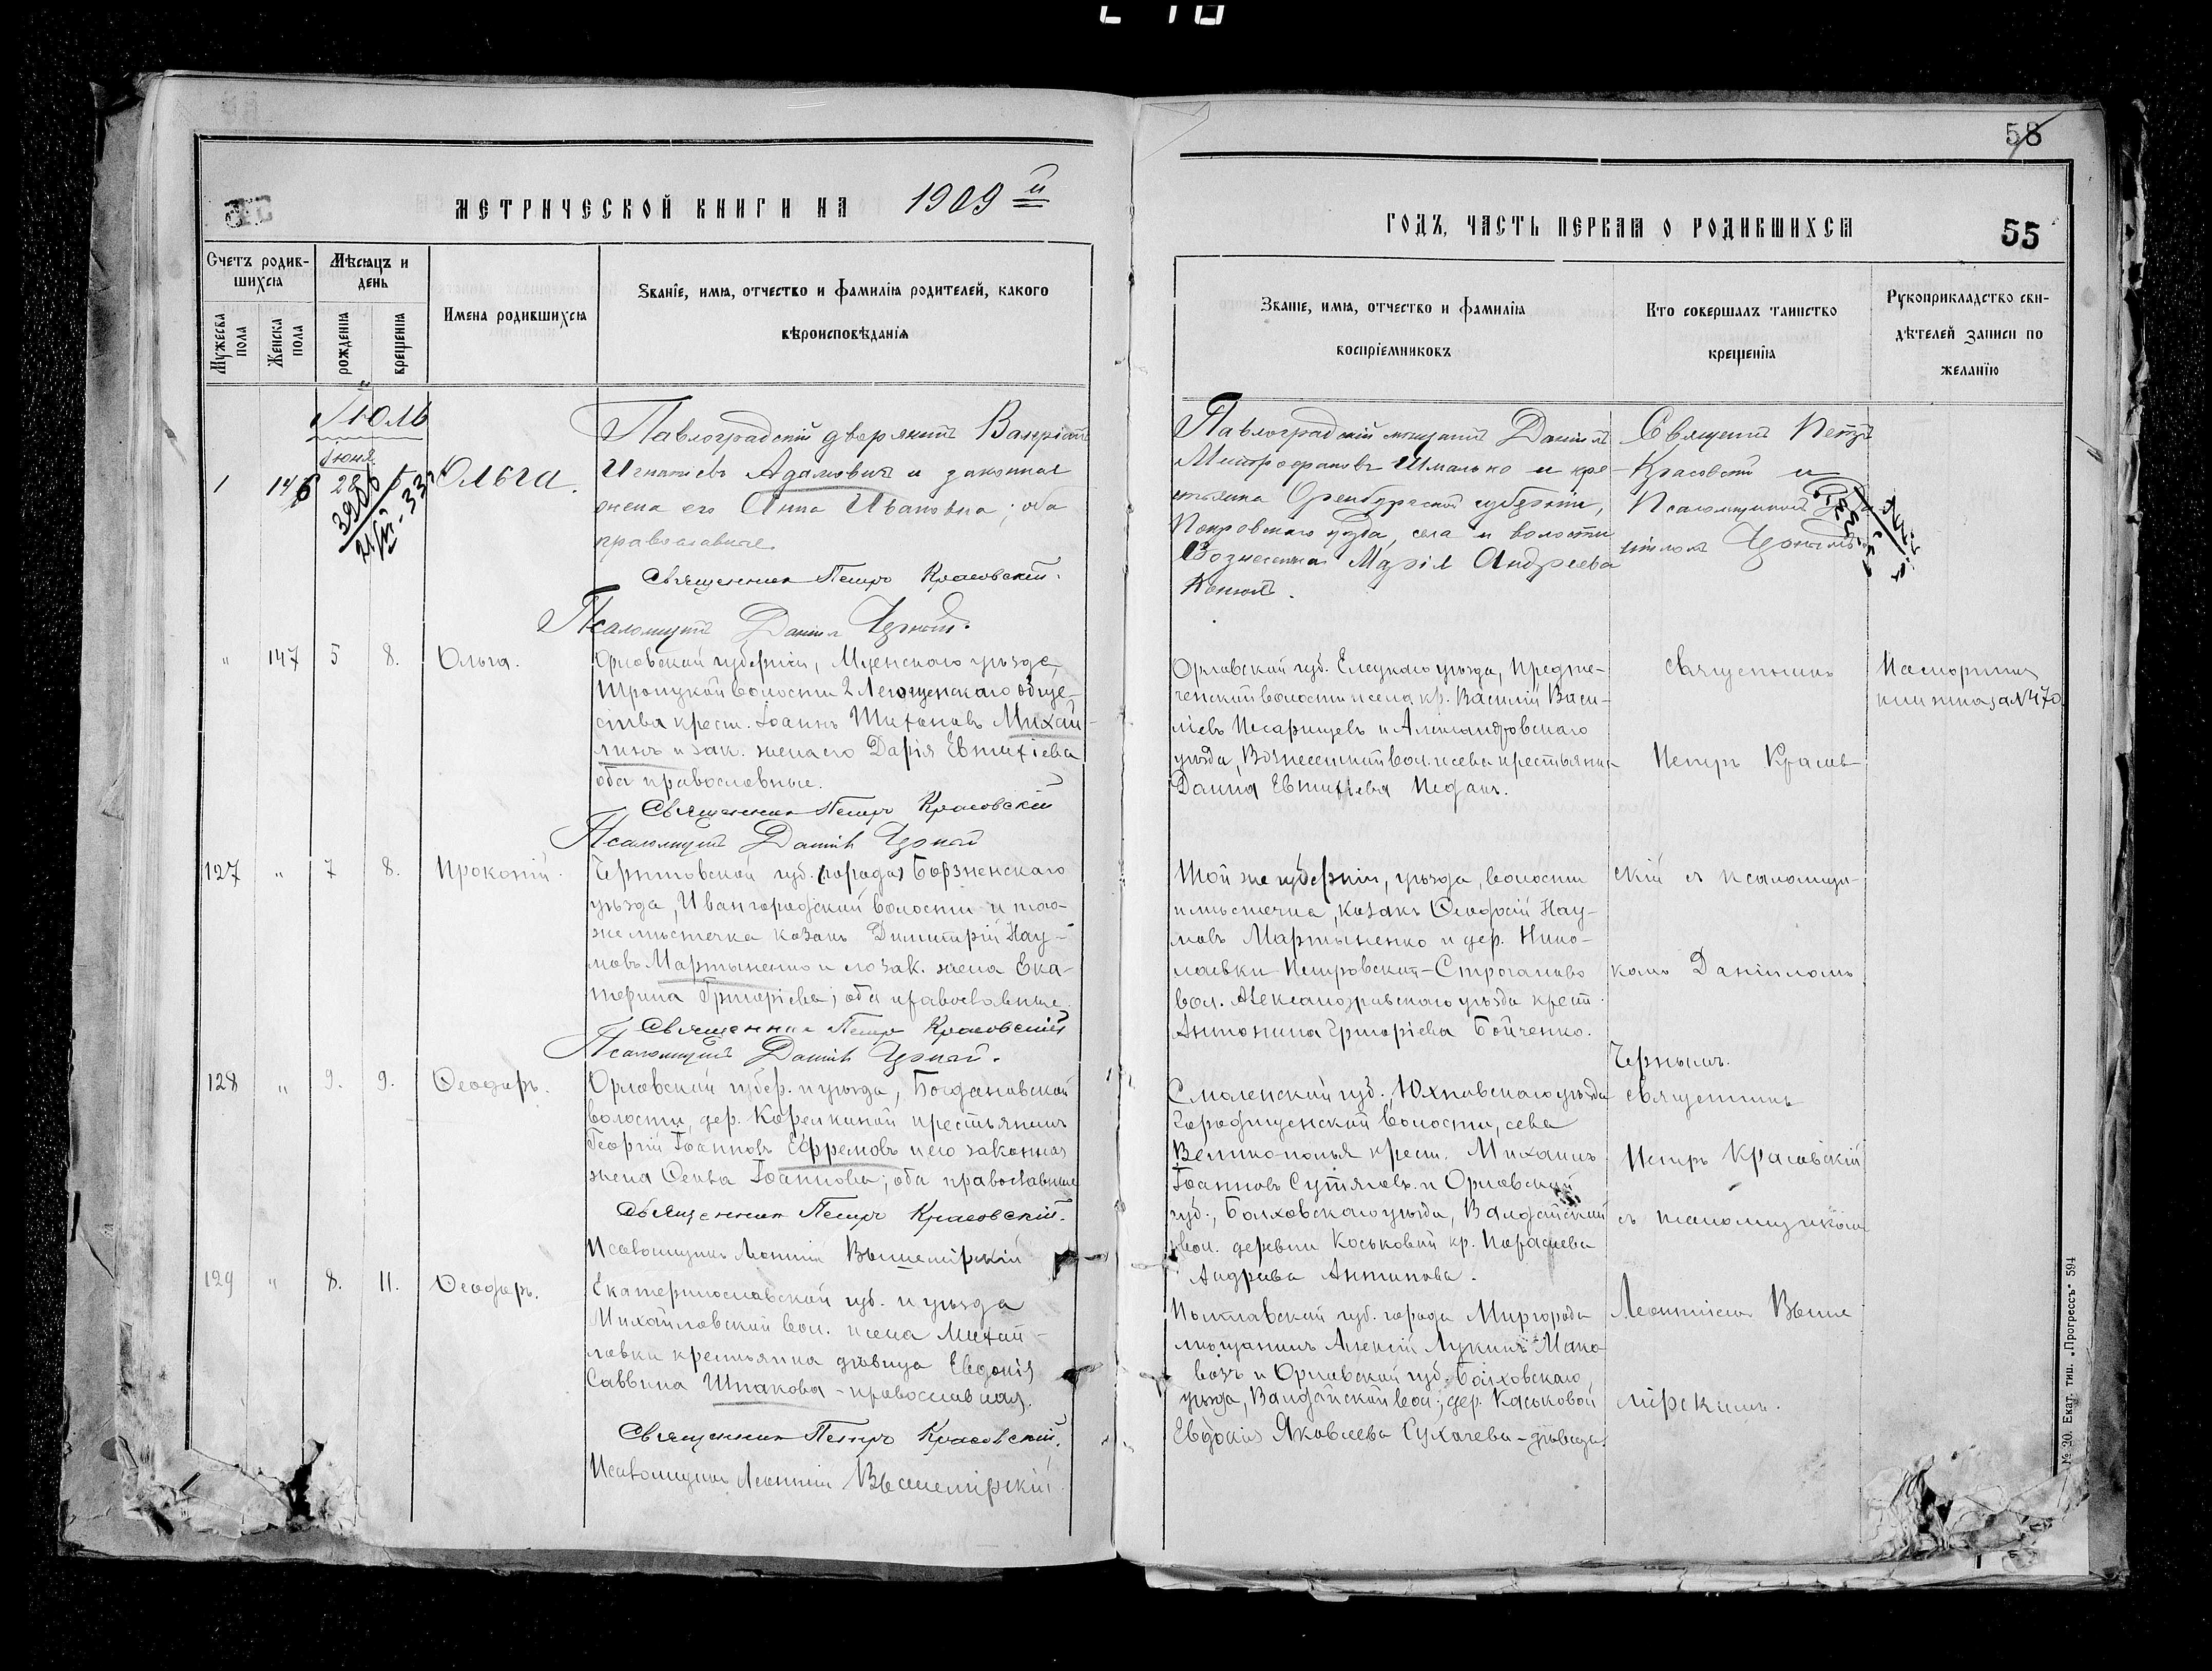 58
МЕТРИЧЕСКОЙ КНИГИ НА 1909 й
ГОДЪ, ЧАСТЬ ПЕРВАЯ О РОДИВШИХСЯ
55
Счетъ родив-
шихся
Мѣсяцъ и
день
Мужеска
пола
Женска
пола
рожденія
крещенія
Имена родившихся
Званіе, имя, отчество и фамилія родителей, какого
вѣроисповѣданія
Званіе, имя, отчество и фамилія
воспріемниковъ
Кто совершалъ таинство
крещенія
Рукоприкладство сви-
дѣтелей записи по
желанію
Іюль
Іюня
146
28
5
Ольга.
Павлоградскій дворянинъ Валеріанъ
Игнатіевъ Адамовичъ и законная
жена его Анна Ивановна; оба
православные
Священник Петръ Красовскій.
Псаломщикъ Даниил Черный.
Павлоградскій мещанинъ Даниилъ
Митрофановъ Шмалько и кре-
стьянка Оренбургской губерніи,
уѣзда, села и волости
Вознесенка Марія Андреева
Священникъ Петръ
Красовскій и
Псаломщикъ
147
5
8.
Ольга.
Орловской губерніи, Мценскаго уѣзда,
Троицкой волости 2 обще-
ства крест. Іоаннъ Михай-
линъ и зак. жена его Дарія Евтихіева
оба православные.
Священник Петръ Красовскій
Псаломщикъ Даниилъ Черный
Орловской губ. Елецкаго уѣзда, Предте-
ченской волости и села кр. Василій Васи-
ліевъ Писаринцевъ и Александровскаго
уѣзда, Вознесенской вол. и села крестьянка
Евтихіева
Священникъ
Петръ Красов-
Паспортная
книжка за № 470
127
"
7
8.
Прокопій.
Черниговской губ. (города) Борзненскаго
уѣзда, Ивангородской волости и того-
же мѣстечка казакъ Димитрій Нау-
мовъ Мартыненко и его зак. жена Ека-
терина Григоріева; оба православные.
Священник Петръ Красовскій
Псаломщикъ Даниилъ Черный.
Той же губерніи, уѣзда, волости
и мѣстечка, казакъ Ѳеодосій Нау-
мовъ Мартыненко и дер. Нико-
лаевки Петровской-Строганово
вол. Александровскаго уѣзда крест.
Антонина Григоріева Бойченко.
скій съ псаломщи-
комъ Даніиломъ
Чернымъ.
128
"
9.
9.
Ѳеодоръ.
Орловской губер. и уѣзда, Богдановской
волости, дер. Корелкиной крестьянинъ
Георгій Іоанновъ Ефремовъ и его законная
жена Іоаннова; оба православные
Священник Петръ Красовскій.
Псаломщикъ Леонтій Вышемірскій
Смоленской губ. Юхновскаго уѣзда
Городищенской волости, села
Великополья крест. Михаилъ
Іоанновъ Сутяговъ и Орловской
губ., Болховскаго уѣзда, Валдайской
вол. деревни Коськовой кр. Параскева
Андреева Антипова.
священникъ
Петръ Красовскій
съ псаломщикомъ
129
"
8.
11.
Ѳеодоръ.
Екатеринославской губ. и уѣзда
Михайловской вол. и села Михай-
ловки крестьянка дѣвица Евдокія
Саввина Шпакова - православная.
Священник Петръ Красовскій.
Псаломщикъ Леонтій Вышемірскій
Полтавской губ. города Миргорода
мещанинъ Алексій Лукинъ Мако-
возъ и Орловской губ. Болховскаго
уѣзда, Валдайской вол., дер. Каськовой
Евдокія Яковлева Сухачева - дѣвица.
Леонтіемъ Выше
мірскимъ.
№ 20. Екат. тип. „Прогрессъ“ 594